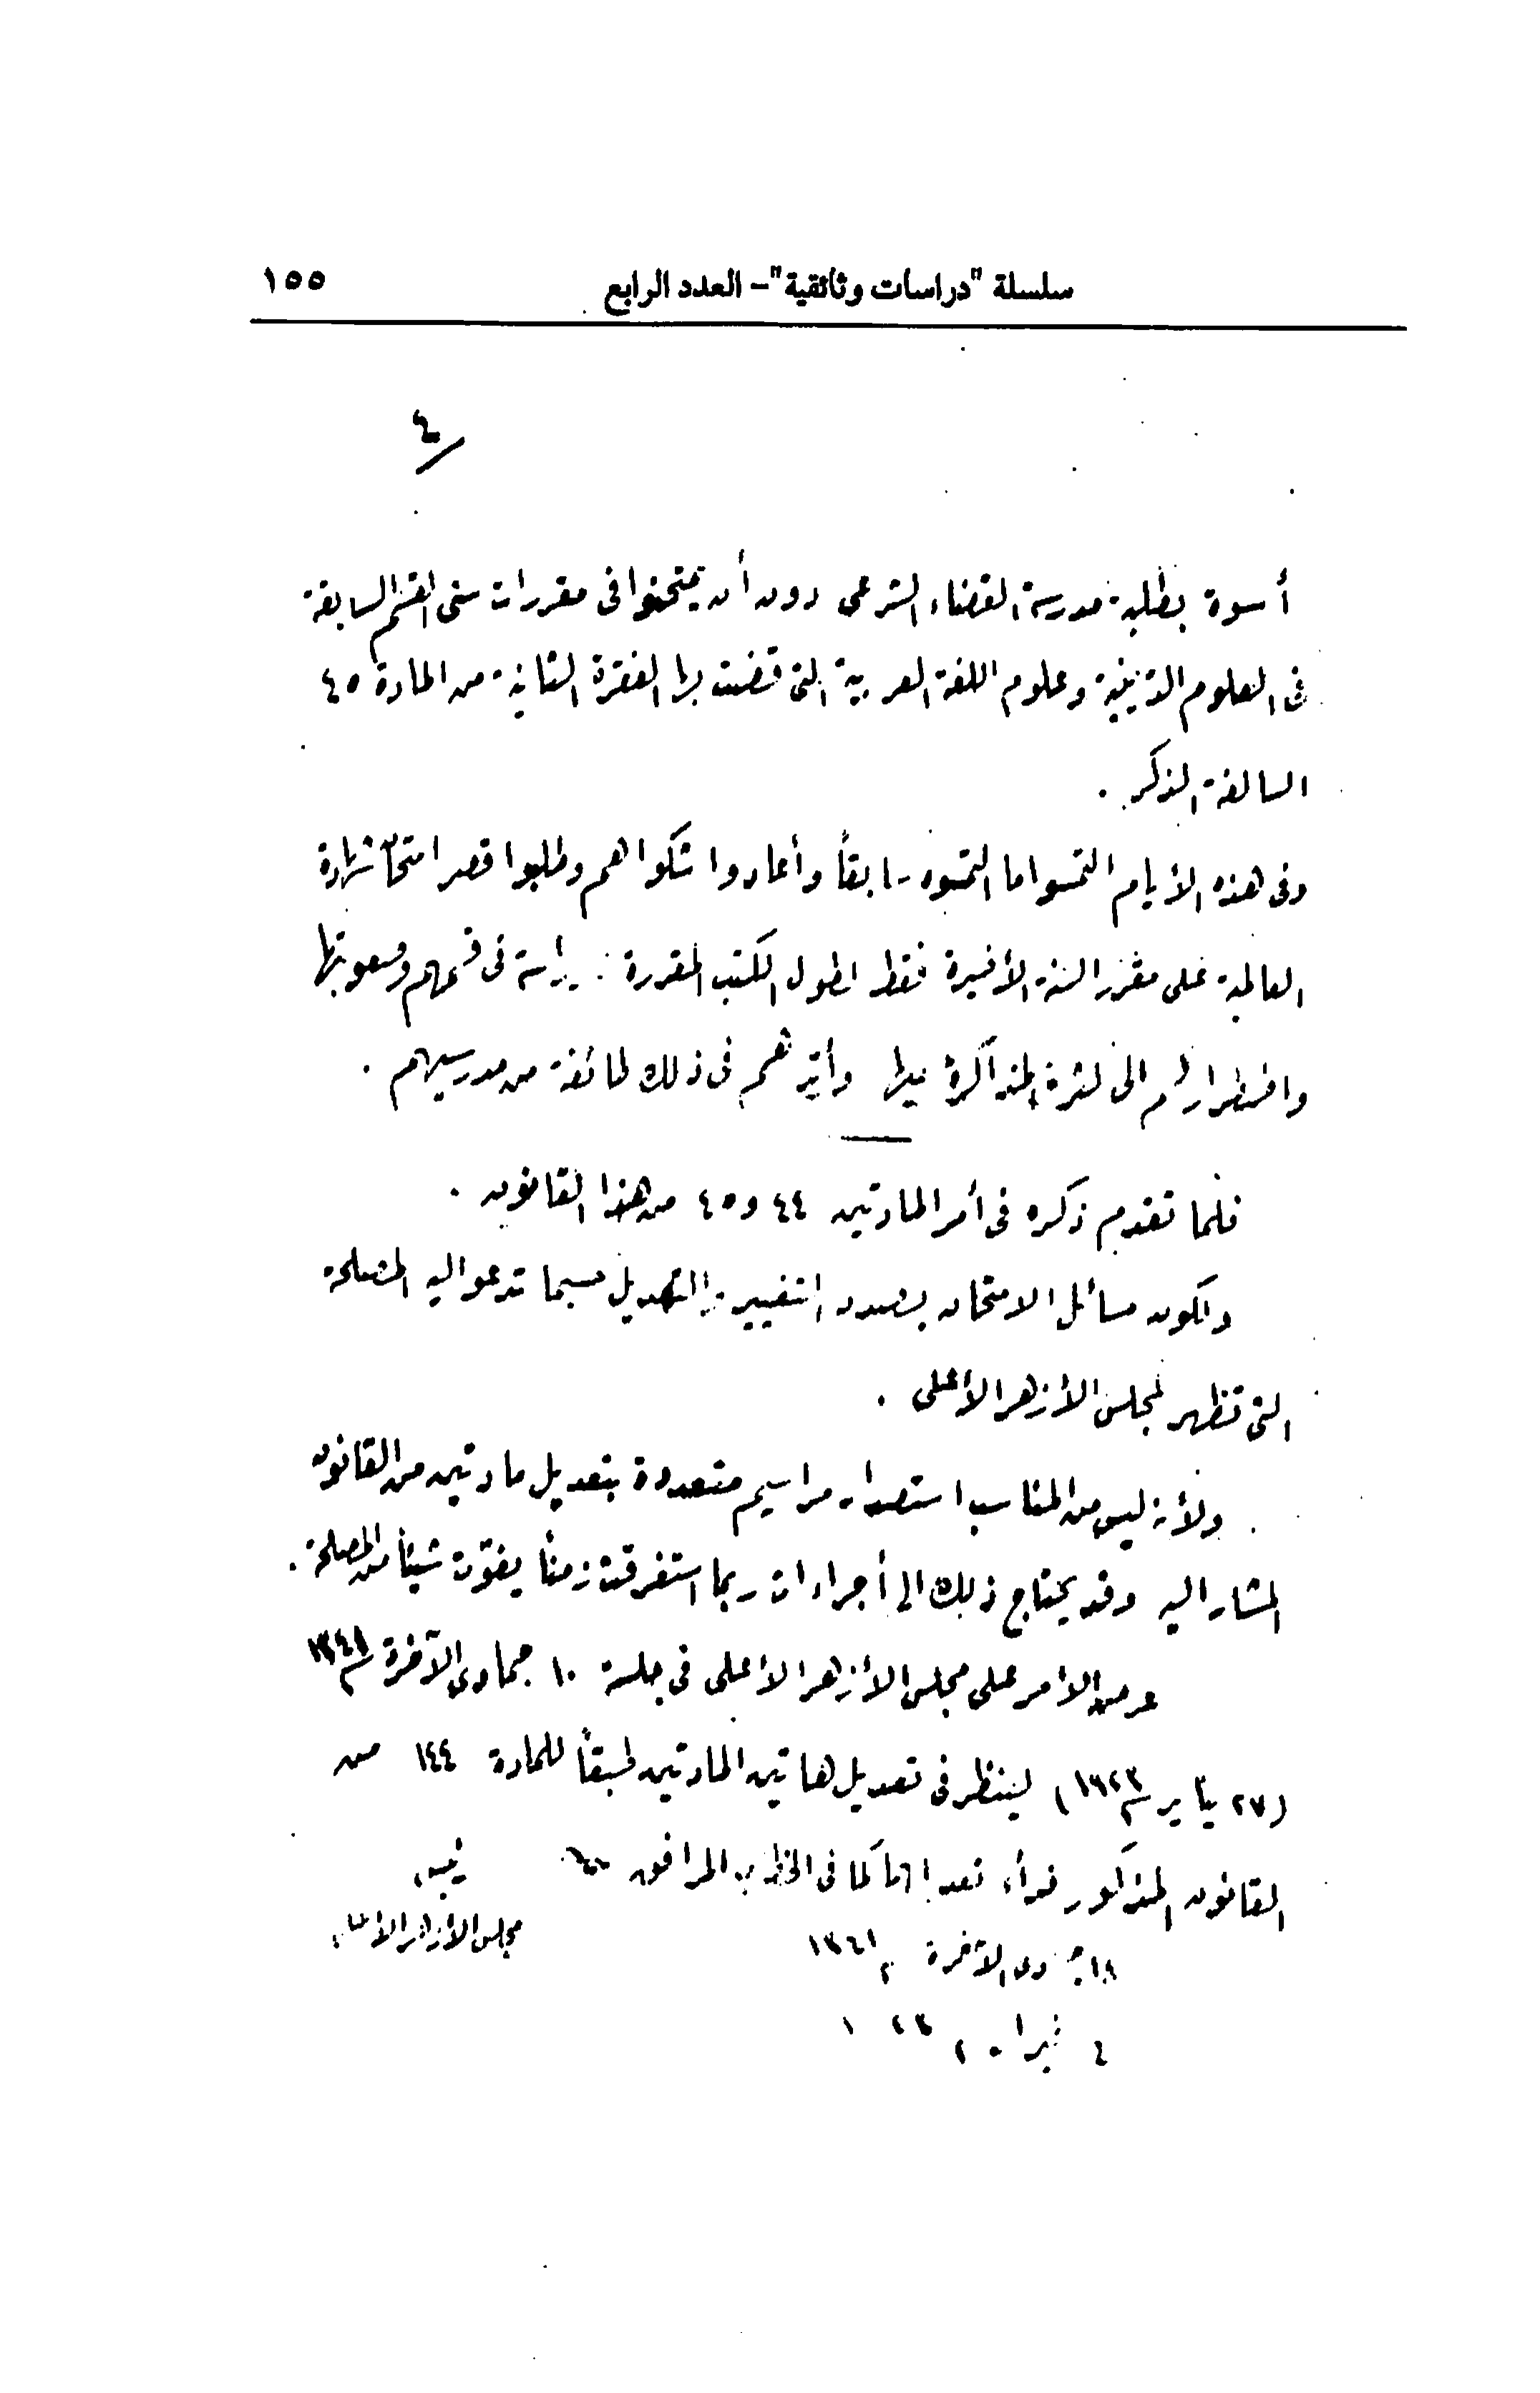 سلسلة "دراسات وثائقية" – العدد الرابع ١٥٥
٤
أسوة بطلبة مدرسة القضاء الشرعى دون أن يمتحنوا فى مقررات سنى القسم السابقة
فى العلوم الدينية وعلوم اللغة العربية التى قضت بها الفقرة الثانية من المادة ٤٥
السالفة الذكر .
وفى هذه الأيام التمسوا ما التمسوه سابقاً وأعادوا شكواهم وطلبوا قصر امتحان شهادة
العالمية على مقرر السنة الأخيرة فقط لطول الكتب المقررة دراسة فى قسمهم وصعوبتها
واضطرارهم الى كثرة المذاكرة فيها وأيدهم فى ذلك طائفة من مدرسيهم .
فلما تقدم ذكره فى أمر المادتين ٤٤ و ٤٥ من هذا القانون .
ولكون مسائل الامتحان بصدد التغيير والتعديل حسبما تدعو اليه المصلحة
التى تظهر لمجلس الأزهر الأعلى .
ولأنه ليس من المناسب استصدار مراسيم متعددة بتعديل مادتين من القانون
المشار اليه وقد يحتاج ذلك الى أجراءات ربما استغرقت زمناً يفوّت شيئاً من المصلحة .
عرض الأمر على مجلس الأزهر الأعلى فى جلسة ١٠ جمادى الآخرة سنة ١٣٤١
(٢٧ يناير سنة ١٩٢٣) لينظر فى تعديل هاتين المادتين طبقاً للمادة ١٤٤ من
القانون المذكور فرأى تعديلهما كما فى الخطاب المرافق
رئيس
مجلس الأزهر الأعلى
١٨ جمادى الآخرة سنة ١٣٤١
٤ فبراير سنة